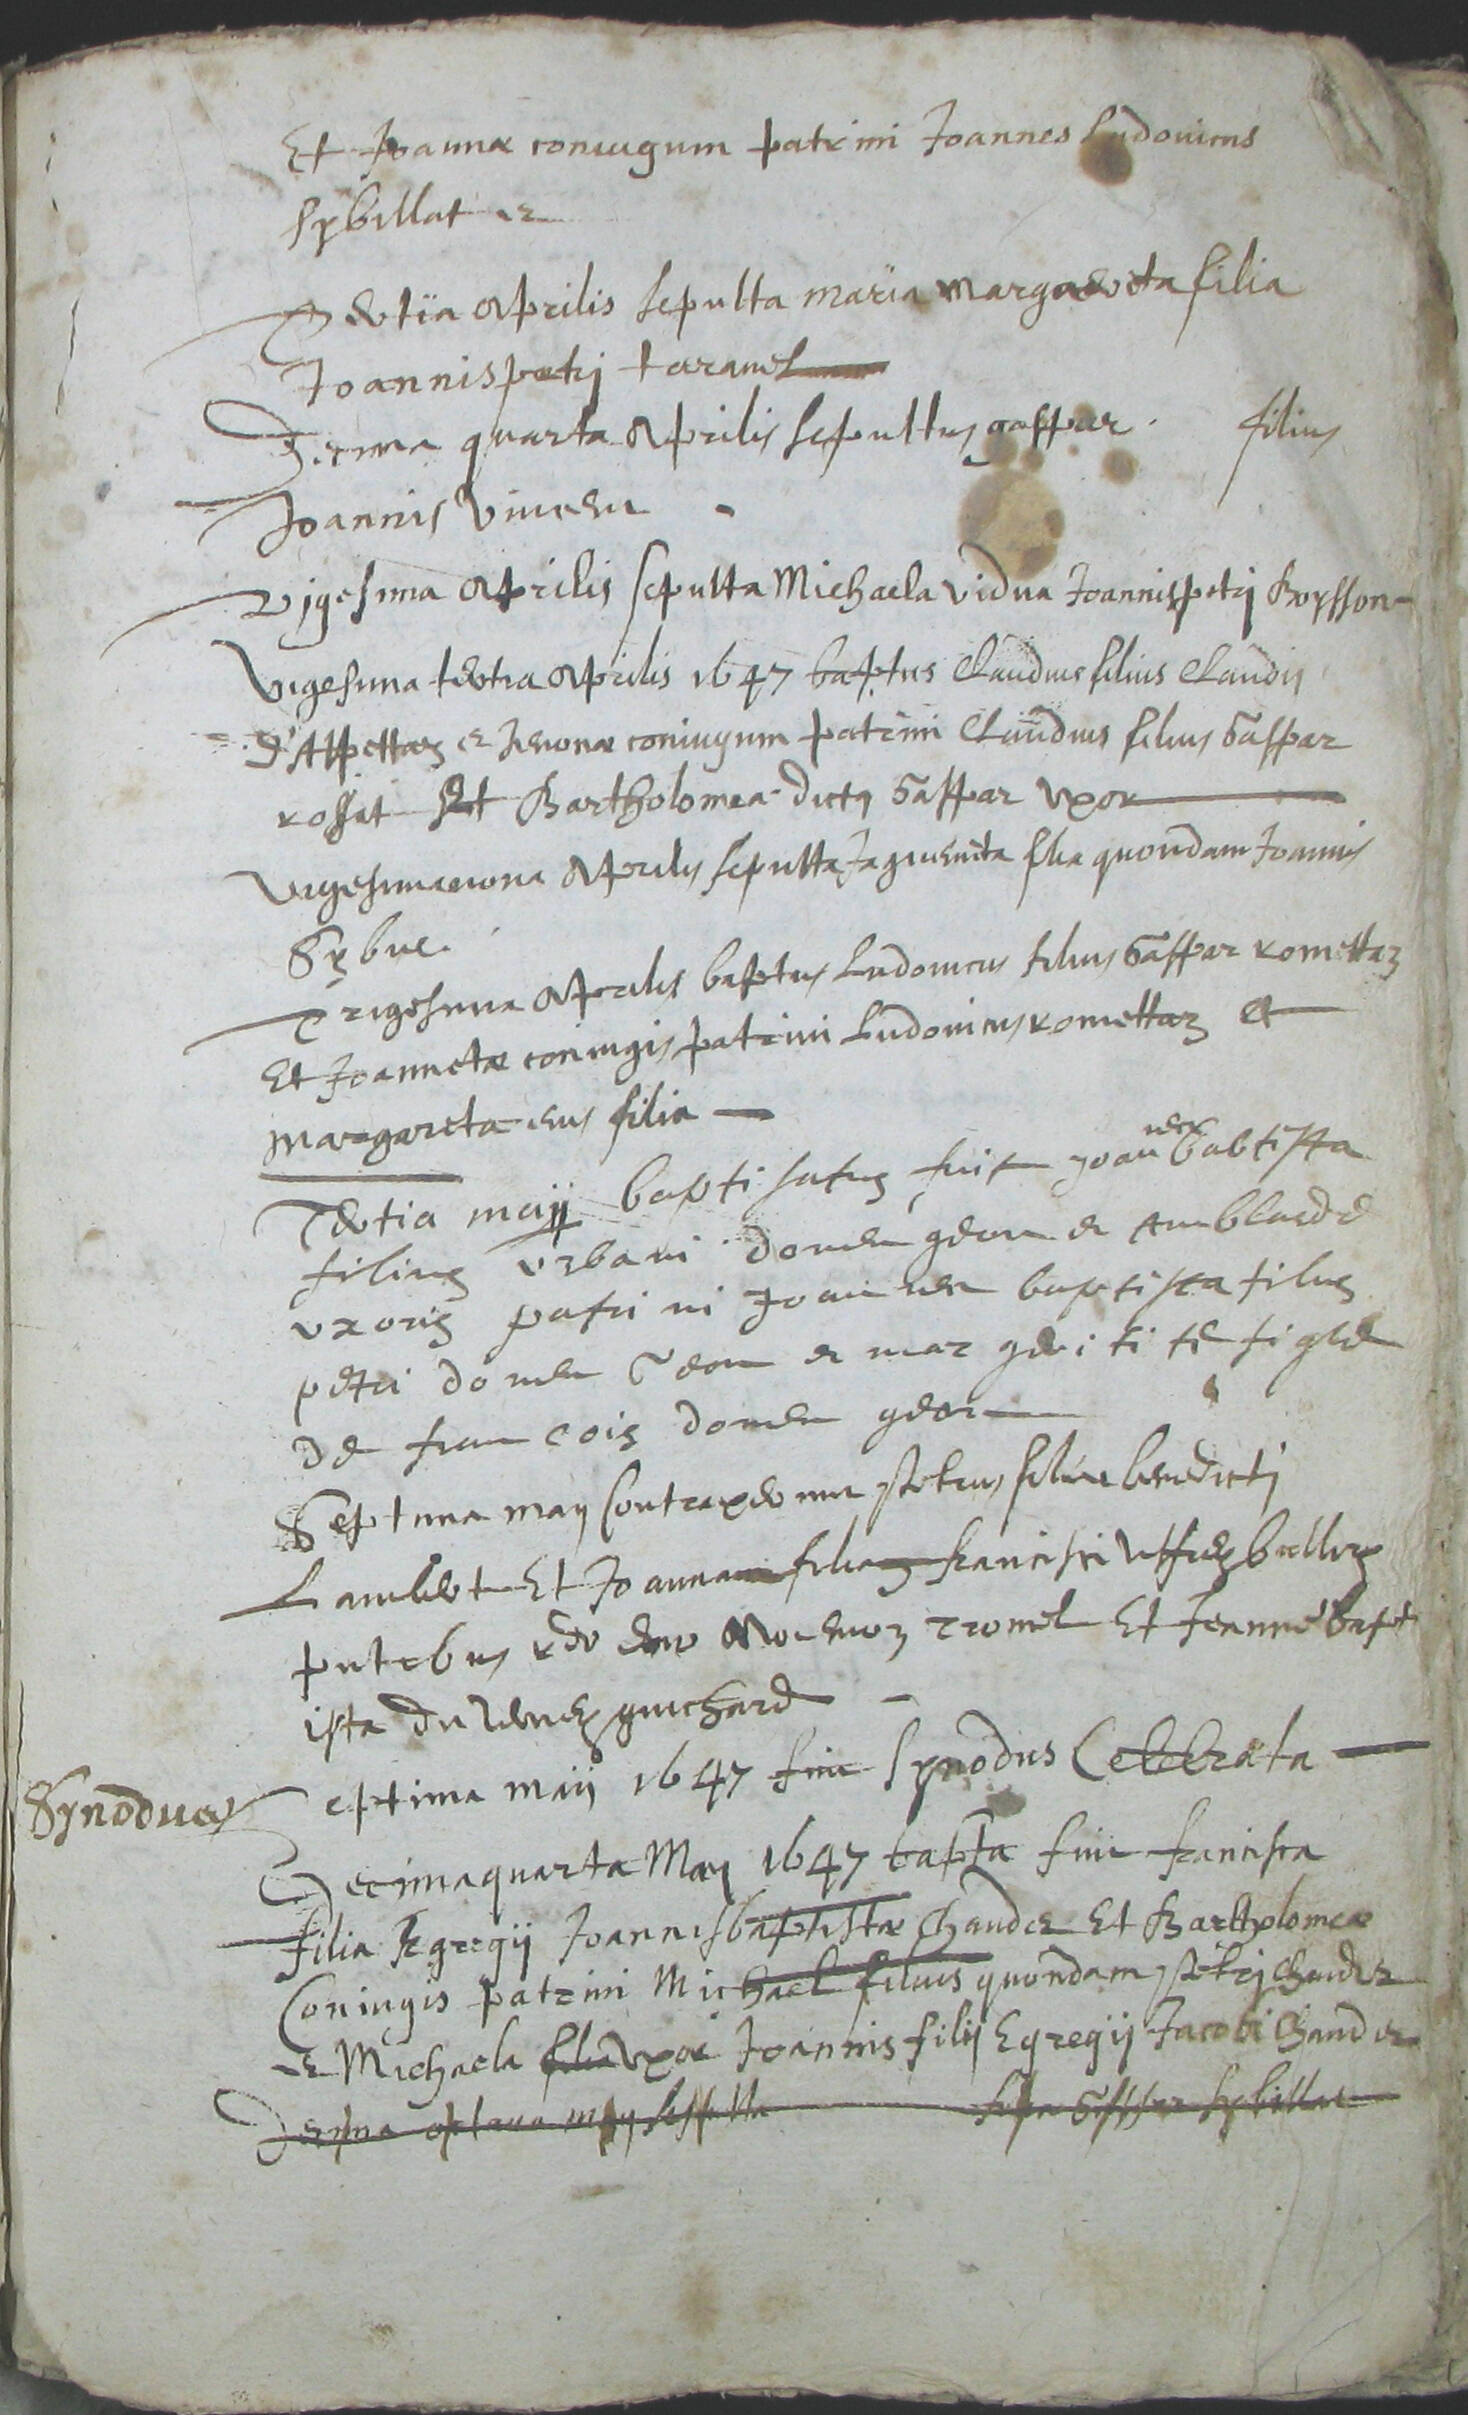 Et Joannæ coniugum patrini Joannes Ludovicus
Sybillat et
Tertia Aprilis sepulta maria margareta filia
Joannis petri taravel
Decima quarta Aprilis sepultus gaspar filius
Joannis
Vigesima Aprilis sepulta Michaela vidua Joannis petri Boysson
Vigesima tertia Aprilis 1647 baptus Claudius filius Claudij
et coniugum patrini Claudius filius Gaspar
rossat Et Bartholomea dicti Gaspar uxor
Vigesima nona Aprilis sepulta Jaquemeta filia quondam Joannis
Sybue
Trigesima Aprilis baptus Ludovicus filius Gaspar romettaz
Et Joannetæ coniugis patrini Ludovicus romettaz Et
margareta eius filia
Tertia maij baptisatus fuit Joannes babtista
filius urbani domen geon et amblarde
uxoris patrini Joannes baptista filius
petri domen geon et
de francois domen geon
Septima maij Contraxerunt petrus filius benedicti
Lambert Et Joanna filia francisci
pntibus Et Jeanne bapt
ista du guichard
Synodus Septima maij 1647 fuit synodus Celebrata
Decimaquarta Maij 1647 bapta fuit francisca
filia Egregij Joannis baptistæ Chander Et Bartholomeæ
Coniugis patrini Michael filius quondam petri Chander
et Michaela filia uxor Joannis filij Egregij Jacobi Chander
Decima octava maij sepulta filia Gaspar sybillat